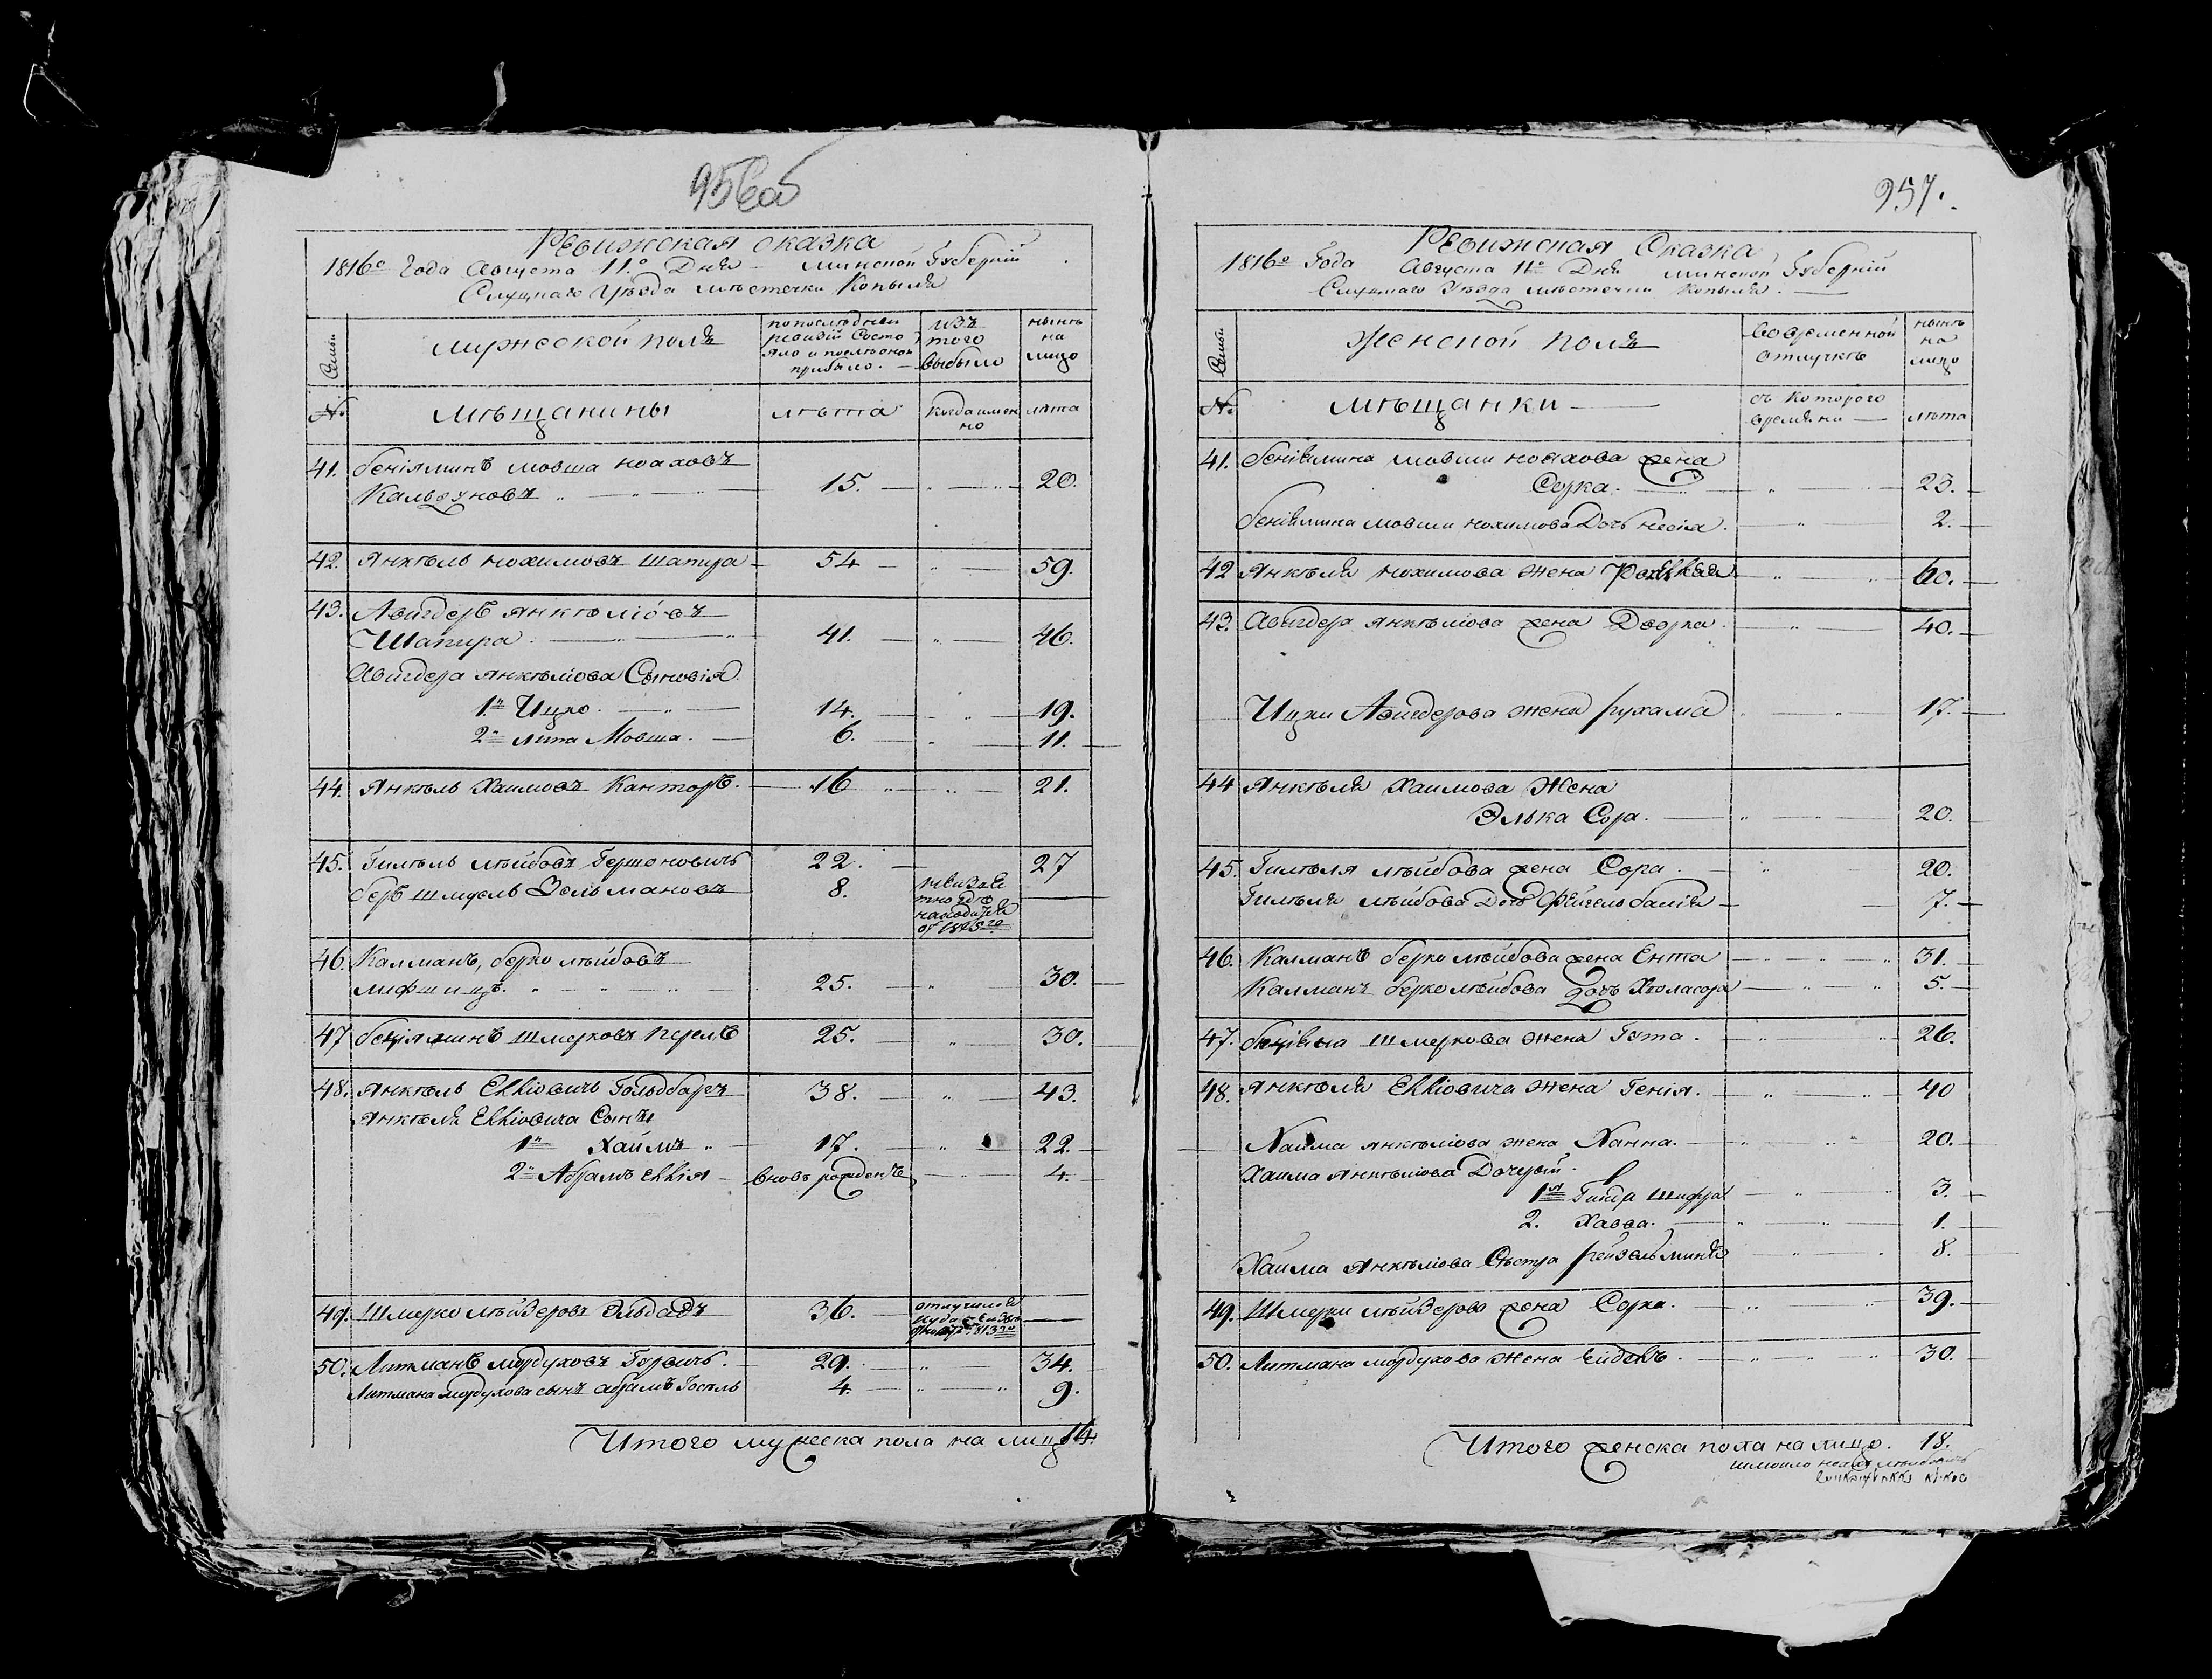 956об
Ревижская сказка
1816го Года Августа 11го Дня Минской Губерний
Слуцкаго Уѣзда мѣстечки Копыля
Семьи
мужеской полъ
по последней
ревизiй Состо
яло и после оной
прибыло.
изъ
того
выбыло
нынѣ
на
лицо
№
мѣщанины
лѣта
Когда имен
но
лѣта
41. бенiяминъ мовша ноаховъ
15. 20.
42. Янкѣль нохимовъ шапира 54 59.
43. Авигдеръ янкѣлiовъ
Шапира 41. 46.
Авигдера янкѣлiова Сыновiя
1й Ицко. 14. 19.
2й Мовша. 6. 11.
44. Янкѣль Хаимовъ Канторъ. 16 21.
45. Гимѣль лѣйбовъ Гершоновичъ 22. 27
беръ шмуель Зельмановъ 8.
находится
46. Калманъ, берко лѣйбовъ
лифшицъ. 25. 30.
47 шмерковъ 25. 30.
48. Янкѣль Еллiовичъ Гольдбаргъ 38. 43.
Янкѣля Еллiовича Сынъ
1й Хаимъ 17. 22.
2й Абрамъ Еллiя вновь рожденъ 4.
49. Шмерко мѣйеровъ Эльдадъ 36.
отлучился
50. Литманъ мордуховъ Горвичъ. 29. 34.
Литмана мордухова сынъ абрамъ Госѣль 4. 9.
Итого мужеска пола на лицо 14.
957.
Ревижская Сказка
1816го Года Августа 11го Дня Минской Губерний
Слуцкаго Уѣзда мѣстечки Копыля.
Семьи
Женской полъ
Во временной
отлучкѣ
нынѣ
на
лицо
№
мѣщанки
съ Которого
времяни
лѣта
41. бенiямина мовши ноахова жена
Сорка. 23.
бенiямина мовши нохимова Дочь несiя. 2.
42 Янкѣля нохимова жена 60.
43. Авигдера янкѣлiова жена Дворка. 40.
Ицки Авигдерова жена рухама 17.
44 Янкѣля Хаимова Жена
Элька Сора. 20.
45. Гимѣля лѣйбова жена Сора. 20.
Гимѣля лѣйбова Дочь Фейгель 7.
46. Калманъ берко лѣйбова жена Ента 31.
Калманъ берко лѣйбова Дочь 5.
47. шмеркова жена Гута. 26.
48. Янкѣля Еллiовича жена Генiя. 40
Хаима янкѣлiова жена Ханна. 20.
Хаима янкѣлiова Дочерiй.
1я Гинда Шифра 3.
2. Хавва. 1.
Хаима янкѣлiова Сѣстра рейзель 8.
49. Шмерки мѣйерова жена Сорка. 39.
50. Литмана мордухова жена Ейдель. 30.
Итого женска пола на лицо. 18.